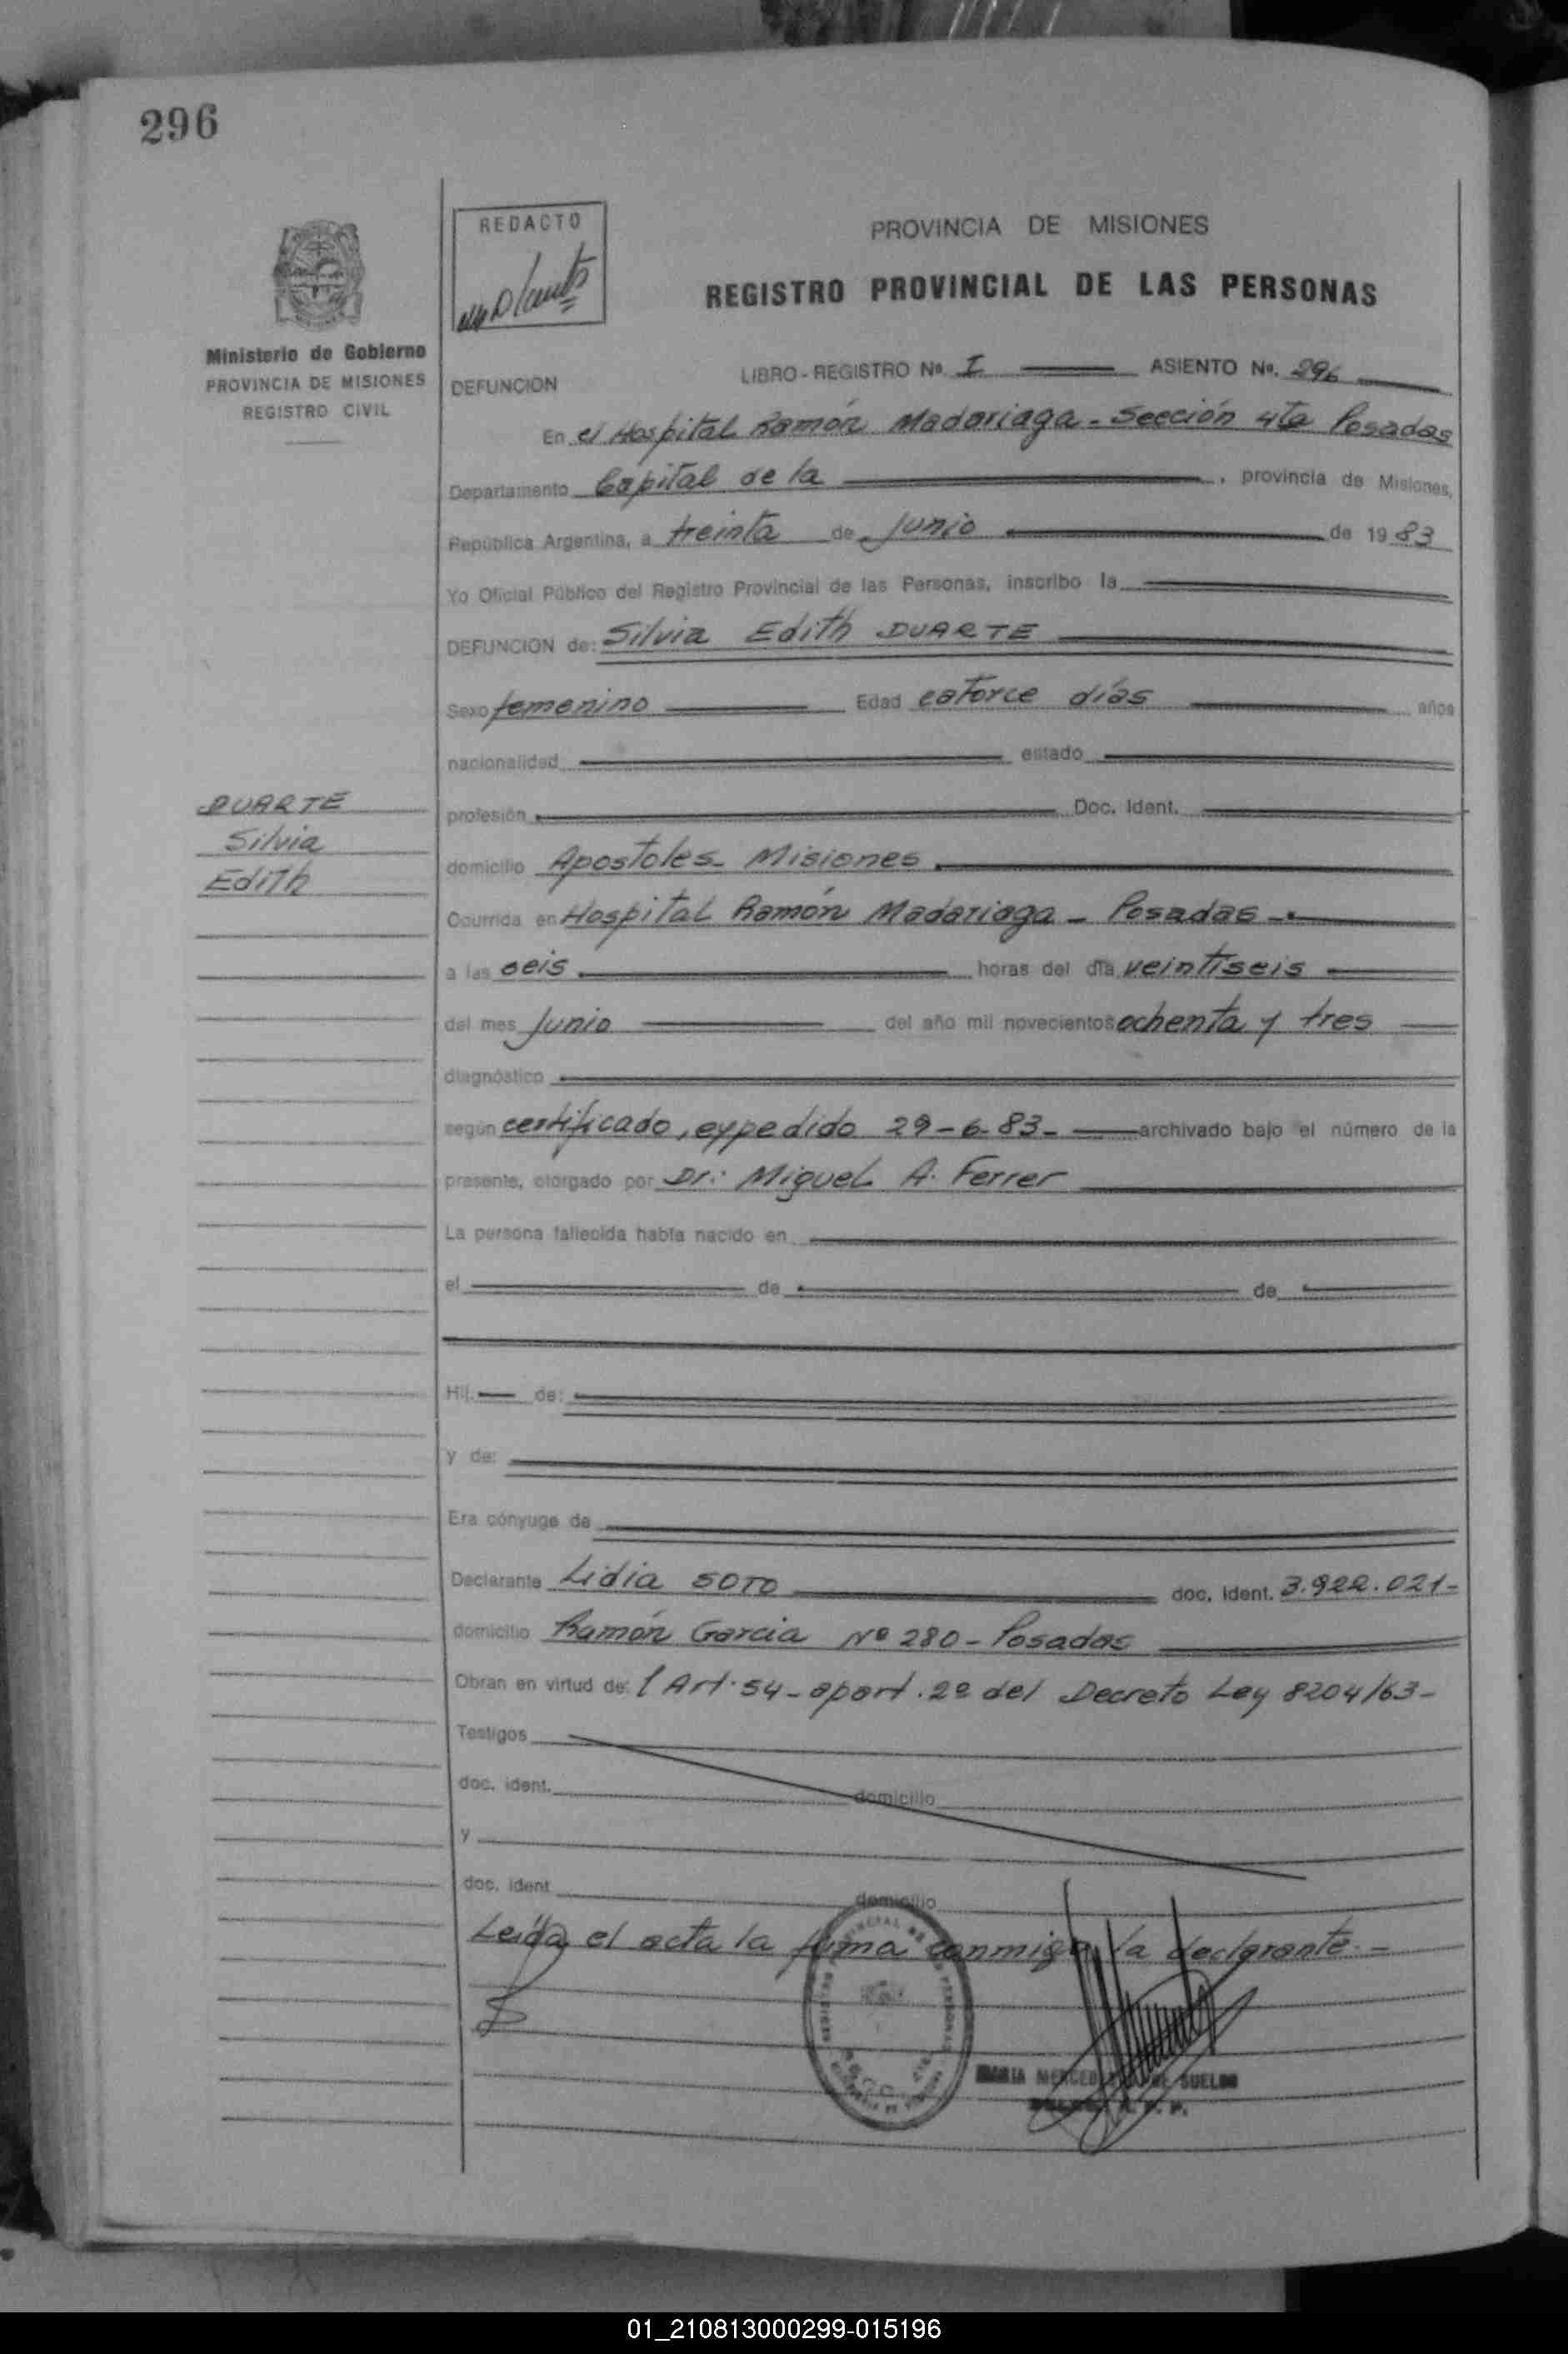 296
REDACTO
PROVINCIA DE MISIONES
REGISTRO PROVINCIAL DE LAS PERSONAS
Ministerio de Gobierno
PROVINCIA DE MISIONES
REGISTRO CIVIL
DEFUNCION LIBRO - REGISTRO Nº. I ASIENTO Nº. 296
En el Hospital Ramón Madariaga - Sección 4ta Posadas
Departamento Capital de la , provincia de Misiones,
República Argentina, a treinta de Junio de 1983
Yo Oficial Público del Registro Provincial de las Personas, inscribo la
DEFUNCION de: Silvia Edith DUARTE
Sexo femenino Edad catorce días años
nacionalidad estado
DUARTE
Silvia
Edith
profesión Doc. Ident.
domicilio Apostoles - Misiones
Ocurrida en Hospital Ramón Madariaga - Posadas -
a las seis horas del día veintiseis
del mes Junio del año mil novecientos ochenta y tres
diagnóstico
según certificado, expedido 29-6-83- archivado bajo el número de la
presente, otorgado por Dr: Miguel A. Ferrer
La persona fallecida había nacido en
el de de
Hij. de:
y de:
Era cónyuge de
Declarante Lidia SOTO doc. ident. 3.922.021-
domicilio Ramón Garcia Nº 280 - Posadas
Obran en virtud de: l Art. 54 - apart. 2º del Decreto Ley 8204/63-
Testigos
doc. ident. domicilio
y
doc. ident domicilio
Leída el acta la firma conmigo la declarante. -
SUELDO
01_210813000299-015196